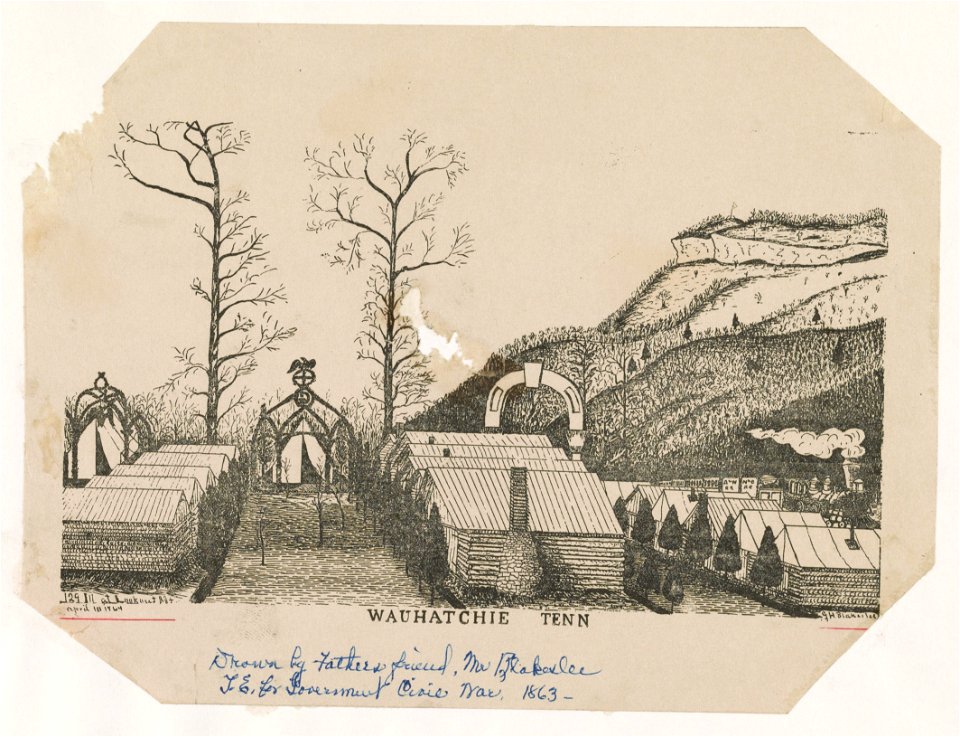 129 Ill at Lookout Mt
April 10 1864
WAUHATCHIE TENN
G H Blakeslee
Drown by Fathers friend, Mr Blakeslee
T. E. for Government Civil War. 1863 -